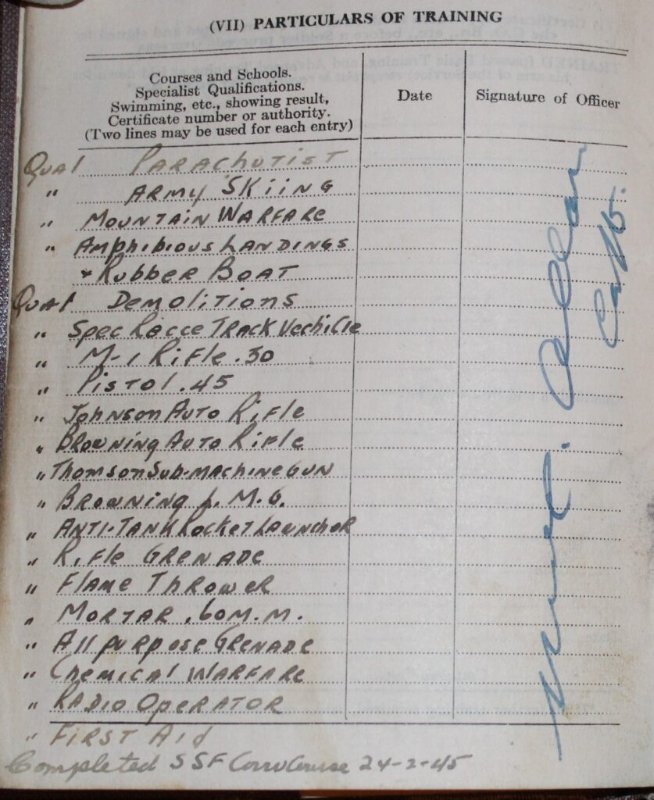 (VII) PARTICULARS OF TRAINING
Courses and Schools.
Specialist Qualifications.
Swimming, etc., showing result,
Certificate number or authority.
(Two lines may be used for each entry)
Date
Signature of Officer
Qual PARACHUTIST
" ARMY SKIING
" MOUNTAIN WARFARE
" AMPHIBIOUS LANDINGS
+ RUBBER BOAT
Qual DEMOLITIONS
" Spec Racce TRACK Vechicle
" M-1 Rifle .30
" Pistol .45
" Johnson Auto Rifle
" BROWNING AUTO Rifle
" Thomson Sub-MACHINE GUN
" BROWNING L.M.G.
" ANTI-TANK Rocket LAUNCHER
" Rifle GRENADE
" FLAME THROWER
" MORTAR .60 M.M.
" All purpose GRENADE
" Chemical WARFARE
" RADIO OPERATOR
" FIRST AID
Completed SSF Course 24-2-45